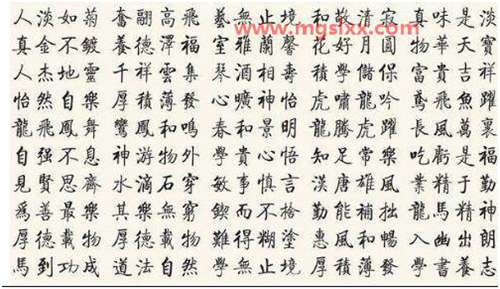 人淡如菊 奮翮高飛 藝無止境 和敬清寂 真味是淡
真金不鍍 養德澤福 室雅蘭馨 花好月圓 物華天寶
人杰地靈 千祥雲集 琴酒相壽 學儲保 富貴吉祥
怡然自樂 厚積薄發 心曠神怡 虎嘯龍吟 鳶飛魚躍
龍飛鳳舞 鸞鳳和鳴 春和景明 龍騰虎躍 長風萬裏
自强不息 神游物外 學貴心悟 知足常樂 吃虧是福
見賢思齊 水滴石穿 敏事慎言 漢唐雄風 業精于勤
爲善最樂 其樂無窮 鍥而不捨 勤能補拙 龍馬精神
厚德載物 厚德載物 難得糊塗 惠風和暢 入幽出朗
馬到功成 道法自然 學無止境 厚積薄發 學書養志
www.mgsixx.com